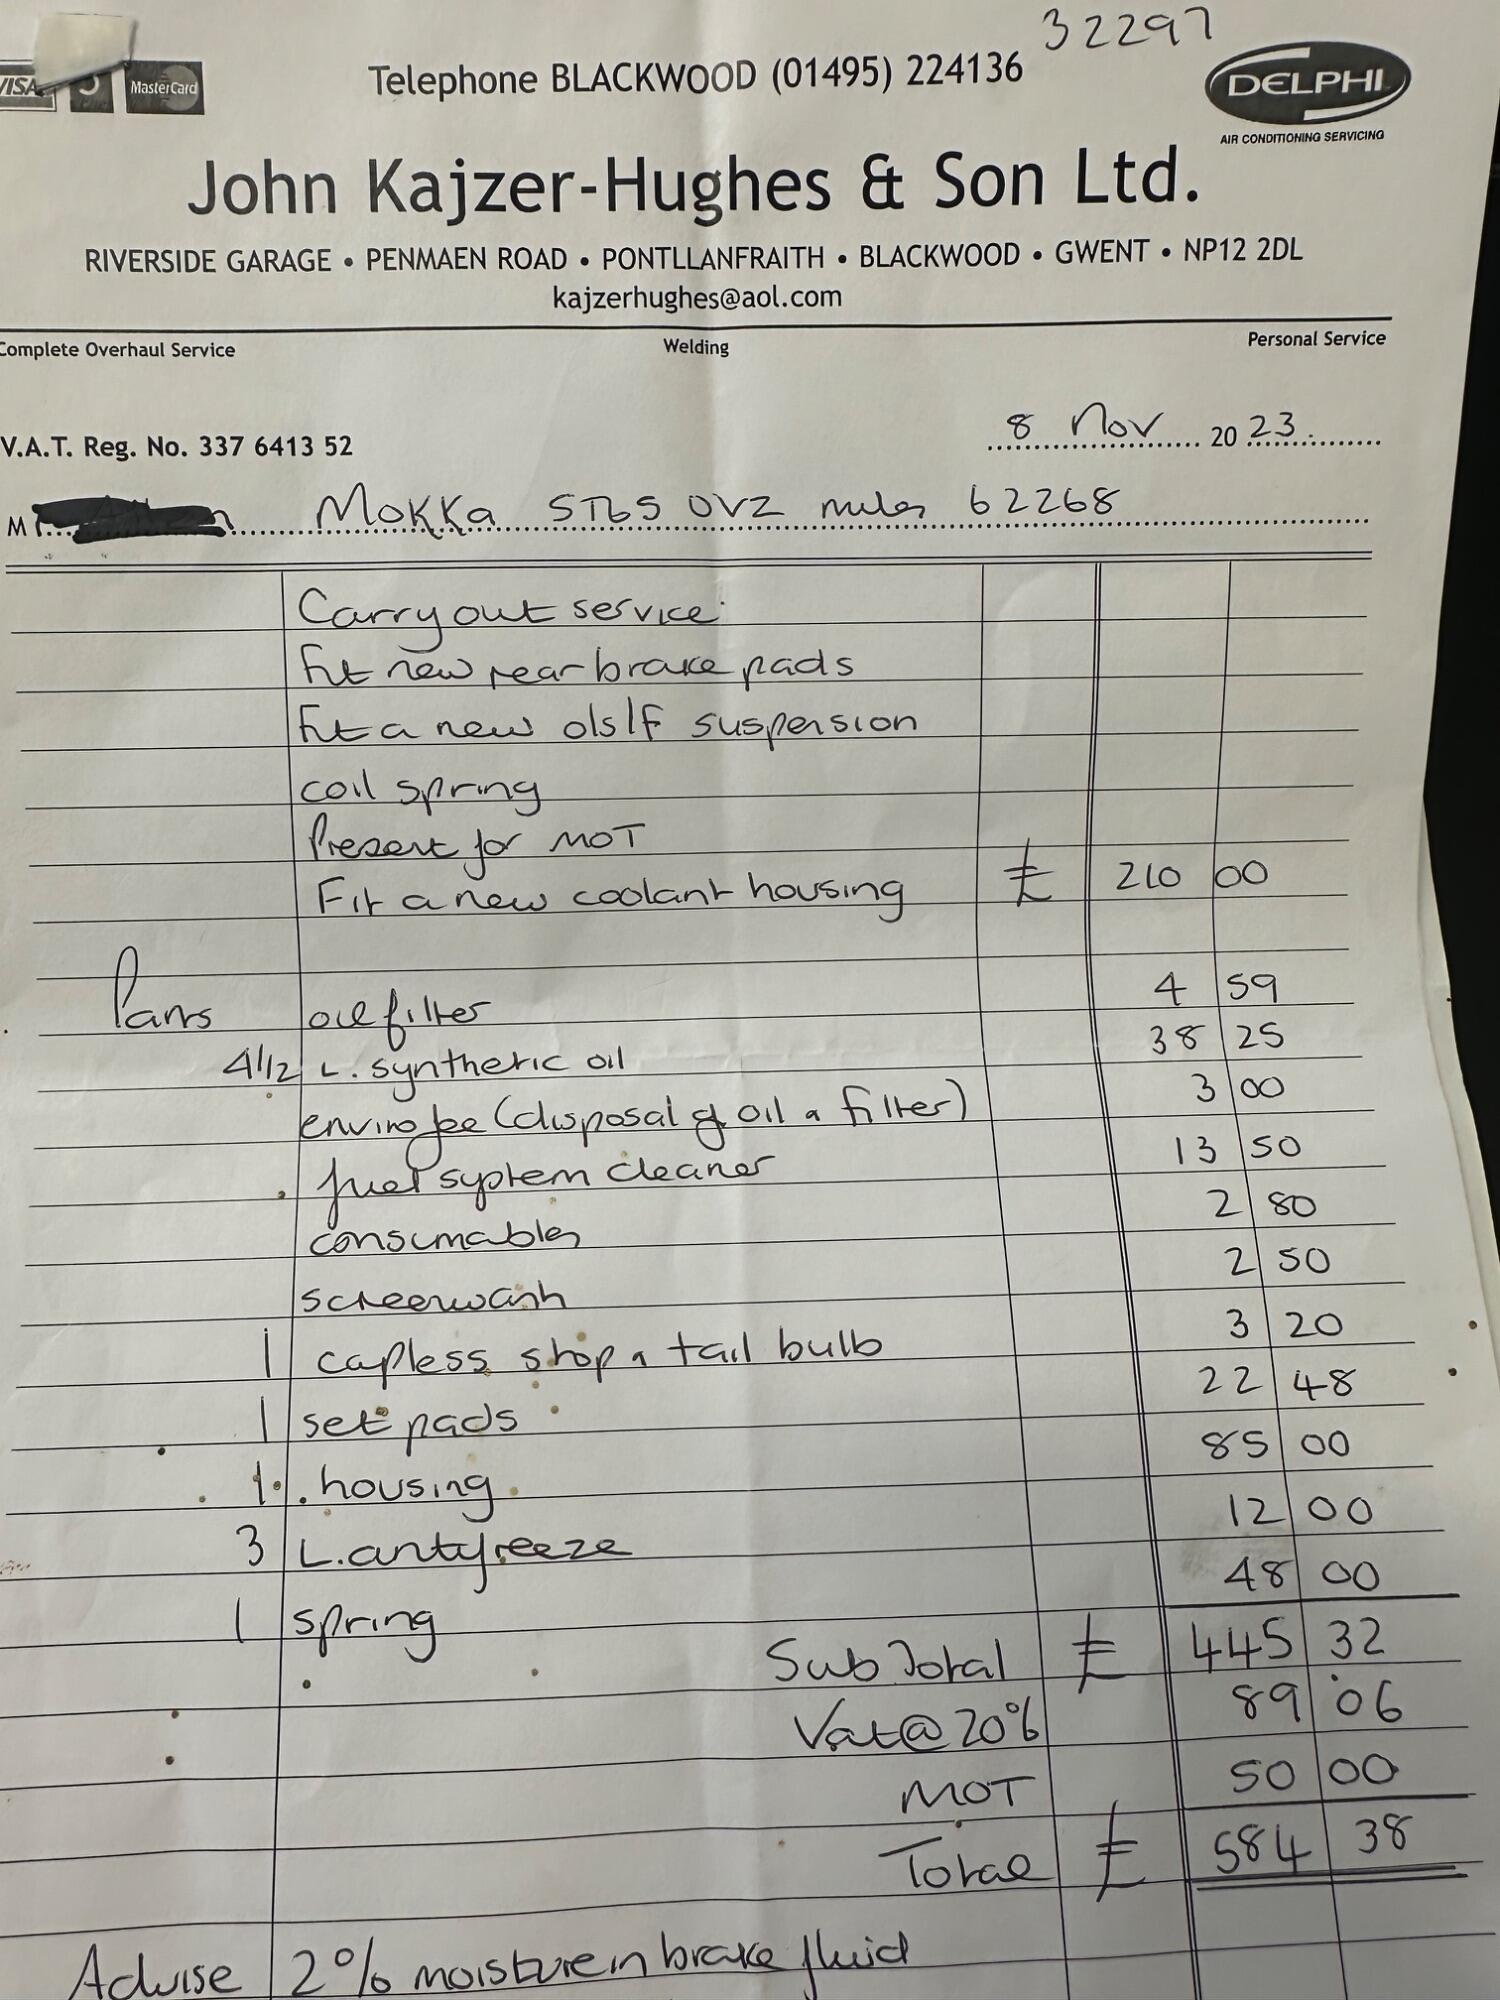 32297
VISA MasterCard
Telephone BLACKWOOD (01495) 224136
DELPHI
AIR CONDITIONING SERVICING
John Kajzer-Hughes & Son Ltd.
RIVERSIDE GARAGE • PENMAEN ROAD • PONTLLANFRAITH • BLACKWOOD • GWENT • NP12 2DL
kajzerhughes@aol.com
Complete Overhaul Service Welding Personal Service
V.A.T. Reg. No. 337 6413 52
8 Nov 2023.
Mr Mokka ST65 OVZ miles 62268
Carry out service
Fit new rear brake pads
Fit a new o/s/f suspension
coil spring
Present for MOT
Fit a new coolant housing £ 210 00
Parts oil filter 4 59
4 1/2 L. synthetic oil 38 25
enviro fee (disposal of oil & filter) 3 00
fuel system cleaner 13 50
consumables 2 80
screenwash 2 50
1 capless stop & tail bulb 3 20
1 set pads 22 48
1 housing 85 00
3 L. antyfreeze 12 00
1 spring 48 00
Sub Total £ 445 32
Vat @ 20% 89 06
MOT 50 00
Total £ 584 38
Advise 2% moisture in brake fluid